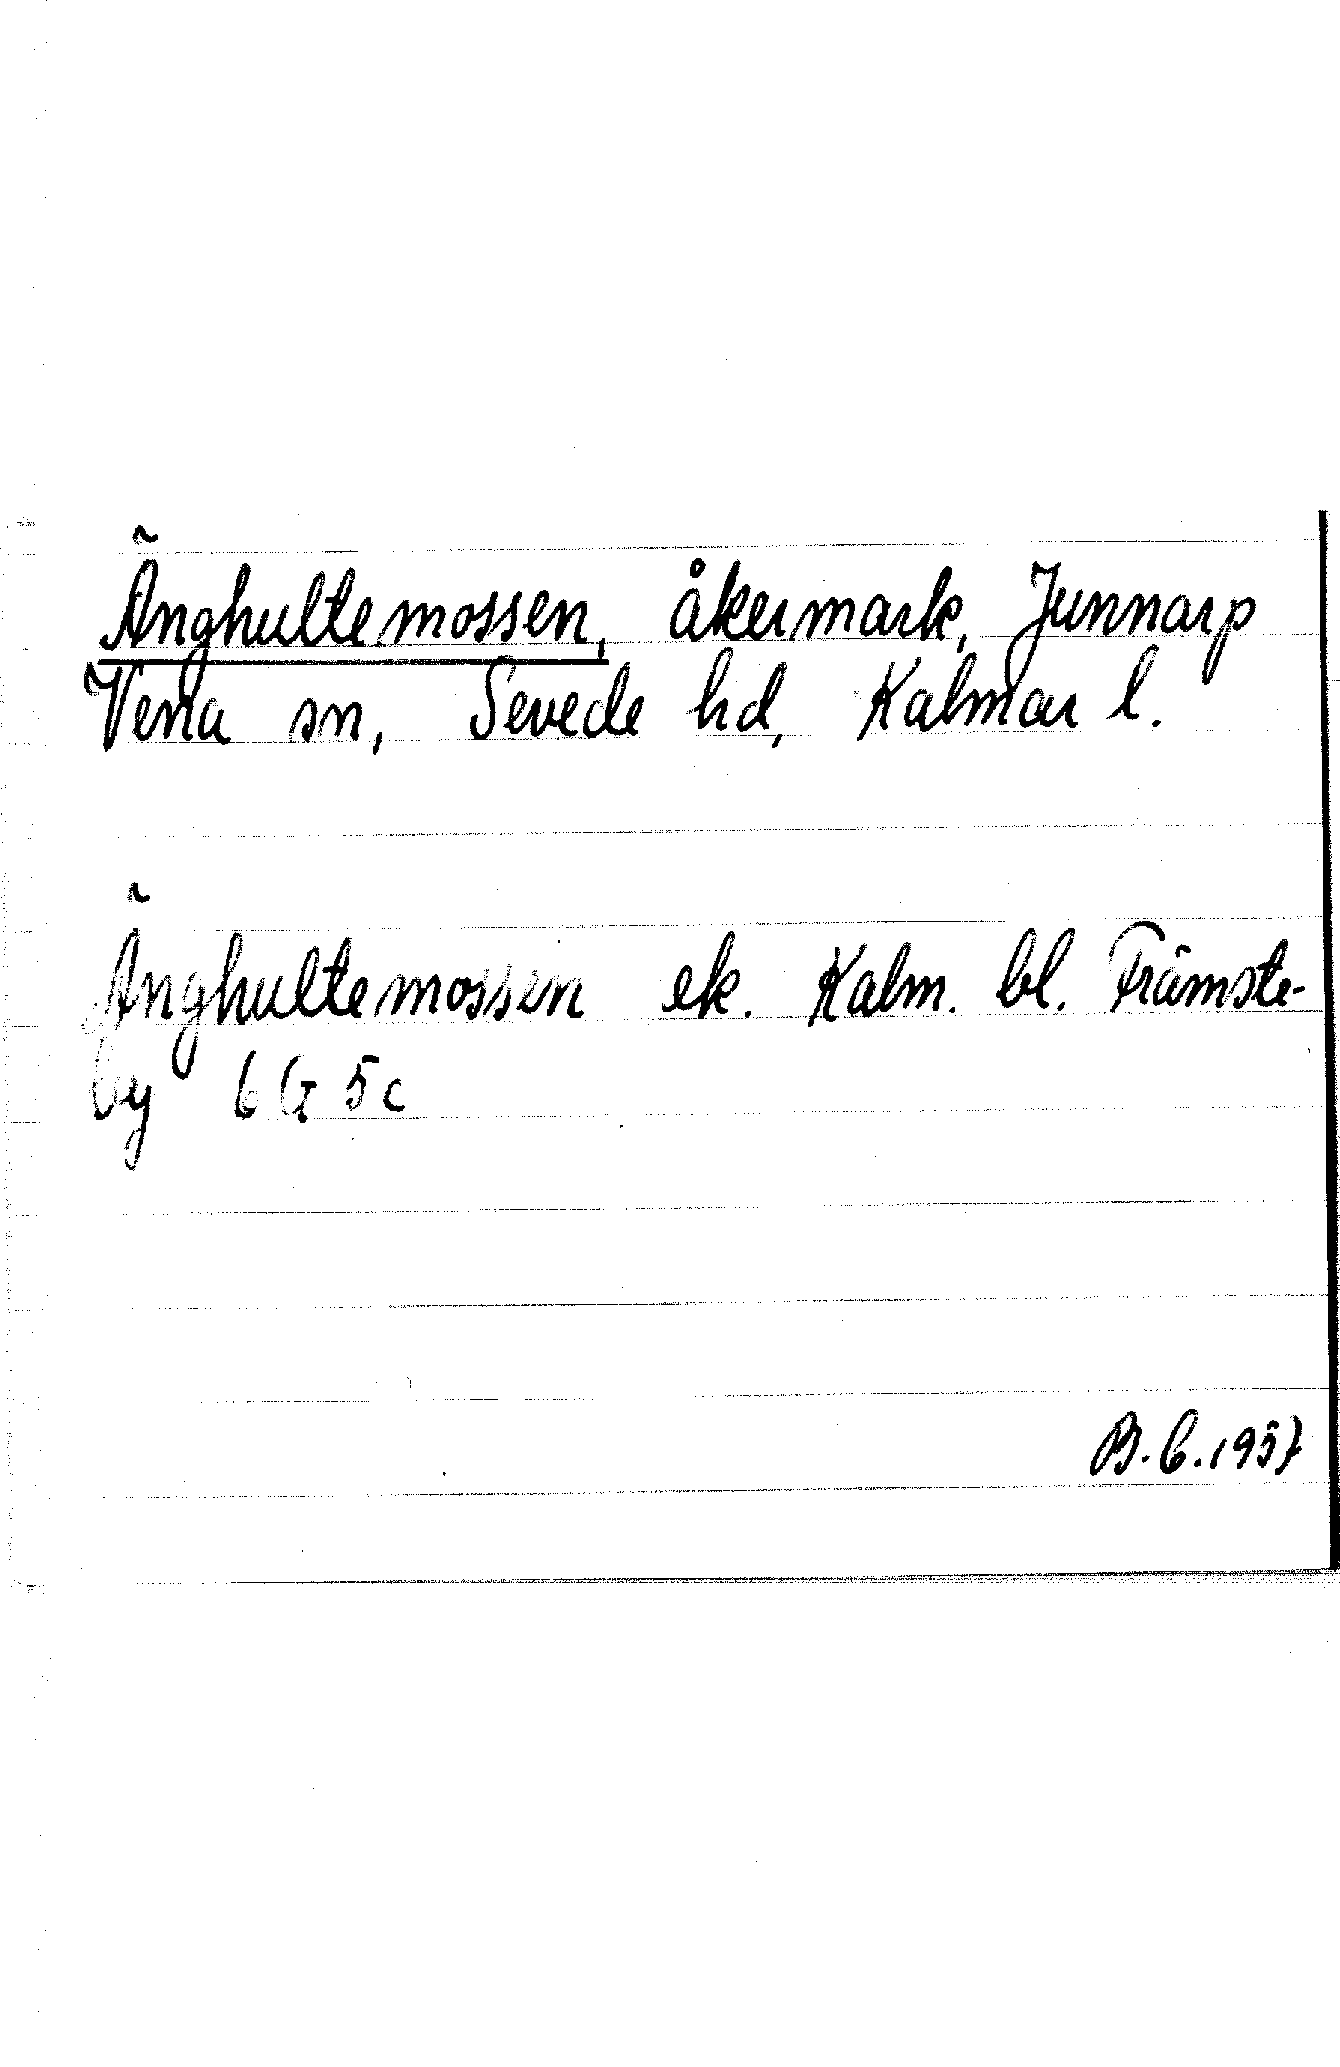 Änghultemossen, åkermark, Junnarp
Vena sn, Sevede hd, Kalmar l.
Änghultemossen ek. Kalm. bl. Främste-
by 6 G 5 c
B.C. 1957